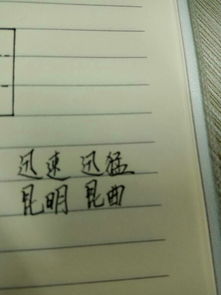 迅速 迅猛
昆明 昆曲